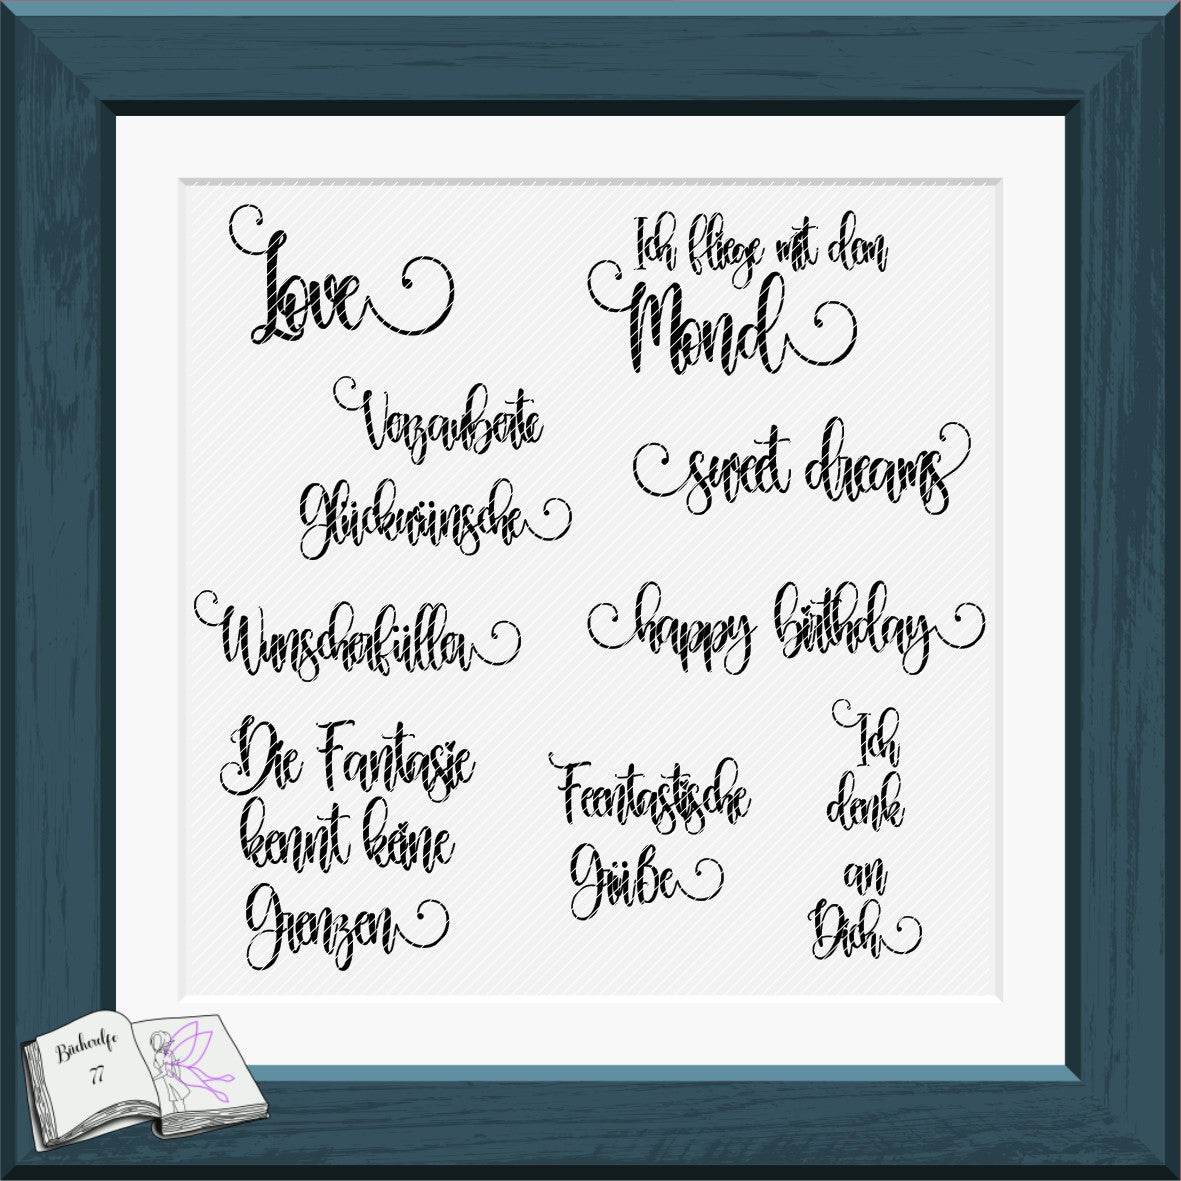 Love
Ich fliege mit dem
Mond
Verzauberte
Glückwünsche
sweet dreams
Wunscherfüller
happy birthday
Die Fantasie
kennt keine
Grenzen
Feentastische
Grüße
Ich
denk
an
Dich
Bücherelfe
77